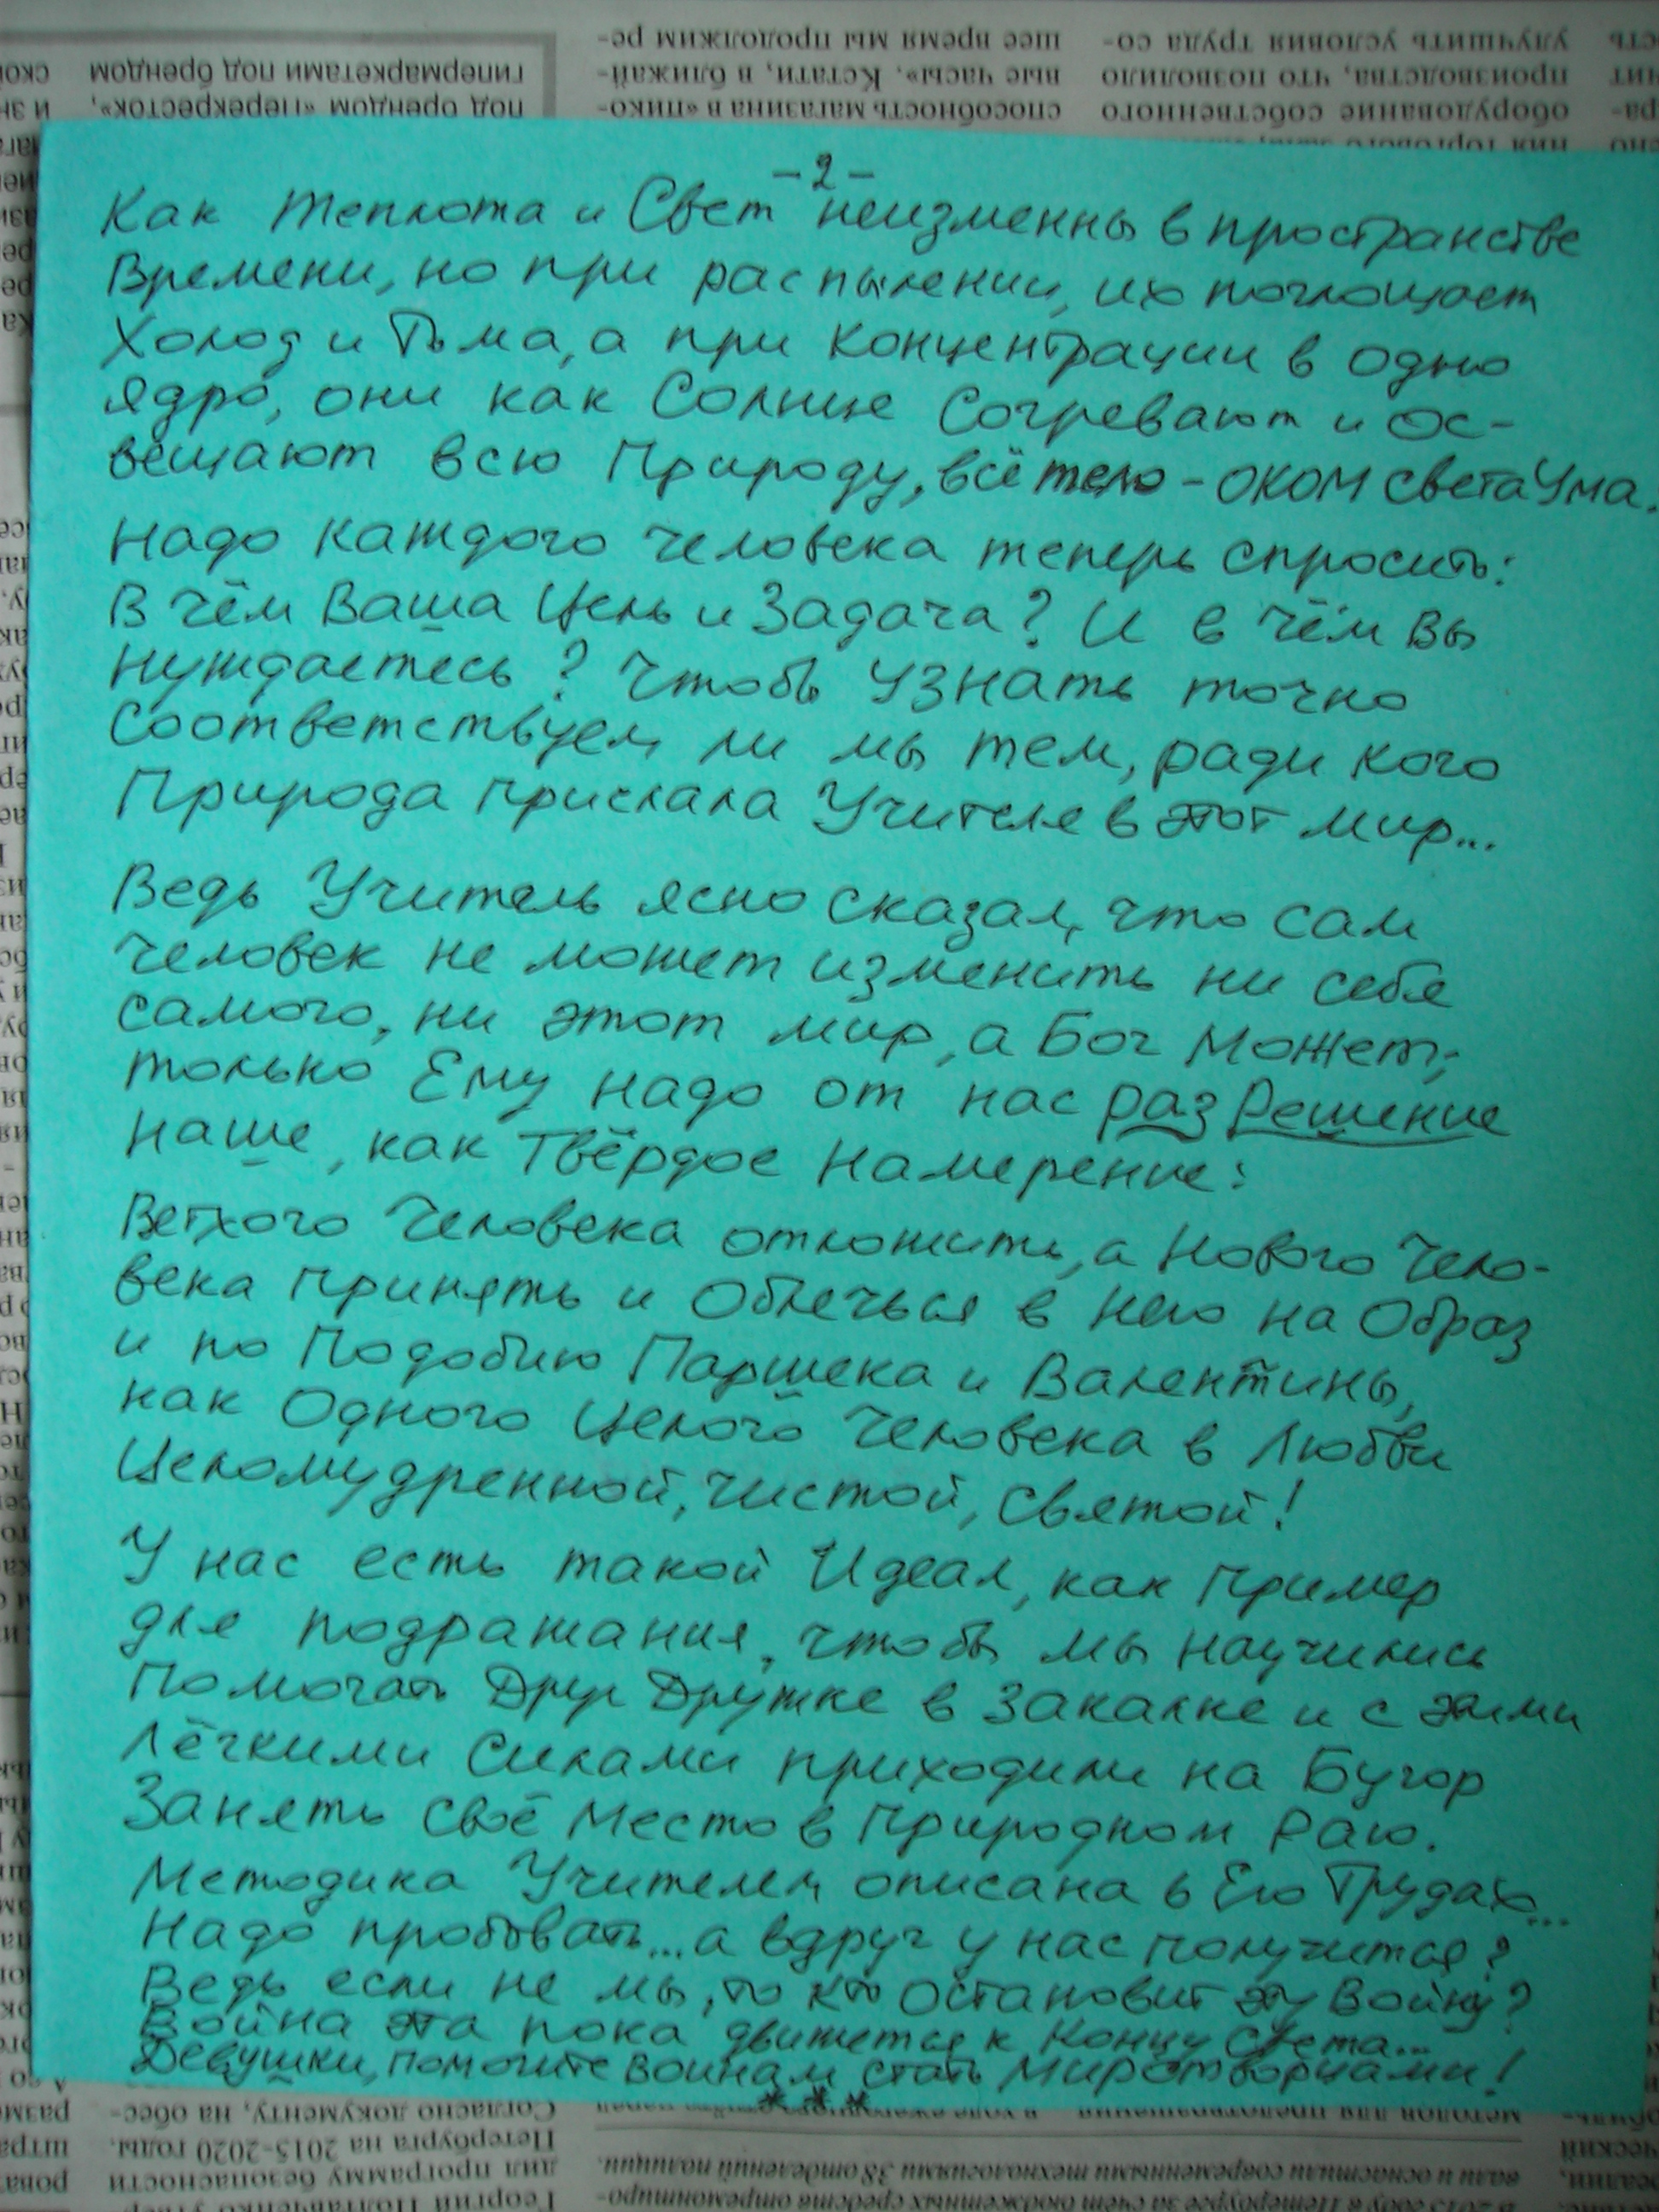 -2-
Как теплота и Свет неизменны в пространстве
Времени, но при распылении, их поглощает
Холод и Тьма, а при концентрации в одно
ядро, они как Солнце Согревают и ос-
вещают всю Природу, всё тело - ОКОМ света Ума.
Надо каждого человека теперь спросить:
В чём Ваша Цель и Задача? И в чём Вы
нуждаетесь? Чтобы узнать точно
соответствуем ли мы тем, ради кого
Природа прислала Учителя в этот мир...
Ведь Учитель ясно сказал, что сам
человек не может изменить ни себя
самого, ни этот мир, а Бог Может;
только Ему надо от нас раз Решение
наше, как Твёрдое намерение:
Ветхого Человека отложить, а Нового Чело-
века принять и Облечься в Него на Образ
и по Подобию Паршека и Валентины,
как Одного Целого Человека в Любви
Целомудренной, чистой, святой!
У нас есть такой Идеал, как пример
для подражания, чтобы мы научились
помогать Друг Дружке в Закалке и с этими
лёгкими Силами приходили на Бугор
Занять своё Место в Природном Раю.
Методика Учителем описана в Его Трудах...
Надо пробовать... а вдруг у нас получится?
Ведь если не мы, то кто остановит эту Войну?
Война эта пока движется к Концу Света...
Девушки, помогите воинам стать Миротворцами!
* * *
гипермаркетами под брендом
под брендом «Перекресток»,
шее время мы продолжим ре-
ные часы». Кстати, в ближай-
способность магазина в «пико-
улучшить условия труда со-
производства, что позволило
оборудование собственного
Согласно документу, на обес-
Петербурга на 2015-2020 годы.
дил программу безопасности